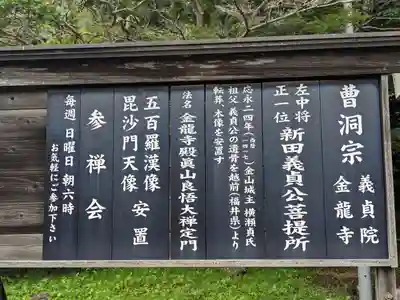 曹洞宗 義貞院 金龍寺
左中将 正一位 新田義貞公菩提所
応永二四年(西暦一四一七)金山城主 横瀬貞氏
祖父 義貞公の遺骨を越前(福井県)より
転葬、木像を安置す
法名 金龍寺殿眞山良悟大禅定門
五百羅漢像 毘沙門天像 安置
参禅会
毎週 日曜日 朝六時
お気軽にご参加下さい